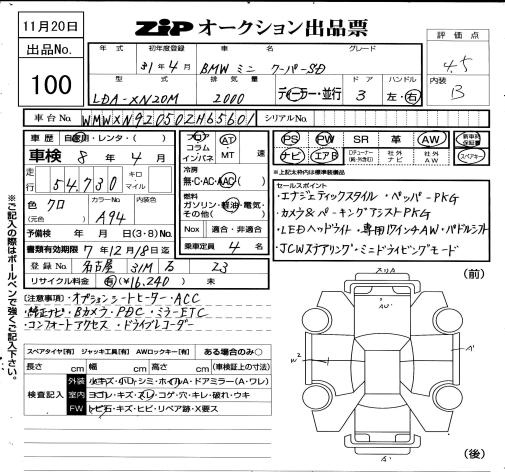 11月20日
ZIP オークション出品票
出品No.
100
年式 初年度登録 車名 グレード
31年4月 BMW ミニ クーパーSD
型式 排気量 ドア ハンドル
LDA-XN20M 2000 ディーラー・並行 3 左・右
評価点
4.5
内装
B
車台No. WMWXN920502H65601 シリアルNo.
車歴 自家用・レンタ・( )
車検 8年4月
走行 54,730 キロ・マイル
色 クロ カラーNo. A94
(元色)
予備検 年 月 日(3・8)モード
書類有効期限 7年12月18日迄
登録No. 名古屋 31M ち 23
リサイクル料金 有(¥16,240) 未
フロア コラム インパネ AT・MT 速
冷房
無・C・AC・AAC( )
燃料
ガソリン・軽油・電気・その他( )
Nox 適合・非適合
乗車定員 4名
PS PW SR 革 AW 新車時保証書
ナビ エアB 社外ナビ 社外AW スペアキー
*上記太わく内は標準装備品
セールスポイント
・エナジェティックスタイル・ペッパーPKG
・カメラ&パーキングアシストPKG
・LEDヘッドライト・専用17インチAW・パドルシフト
・JCWステアリング・ミニドライビングモード
[注意事項]・オプションシートヒーター・ACC
・純正ナビ・Bカメラ・PDC・ミラーETC
・コンフォートアクセス・ドライブレコーダー
スペアタイヤ[有] ジャッキ工具[有] AWロックキー[有] ある場合のみ○
長さ cm 幅 cm 高さ cm (車検証上の寸法)
検査記入
外装 小キズ・小凹・シミ・ホイルA・ドアミラー(A・ワレ)
室内 ヨゴレ・キズ・スレ・コゲ・穴・キレ・破れ・ウキ
FW トビ石・キズ・ヒビ・リペア跡・X要ス
※ご記入の際はボールペンで強くご記入下さい。
(前)
スリA
AU'
W2
A'
A'
(後)